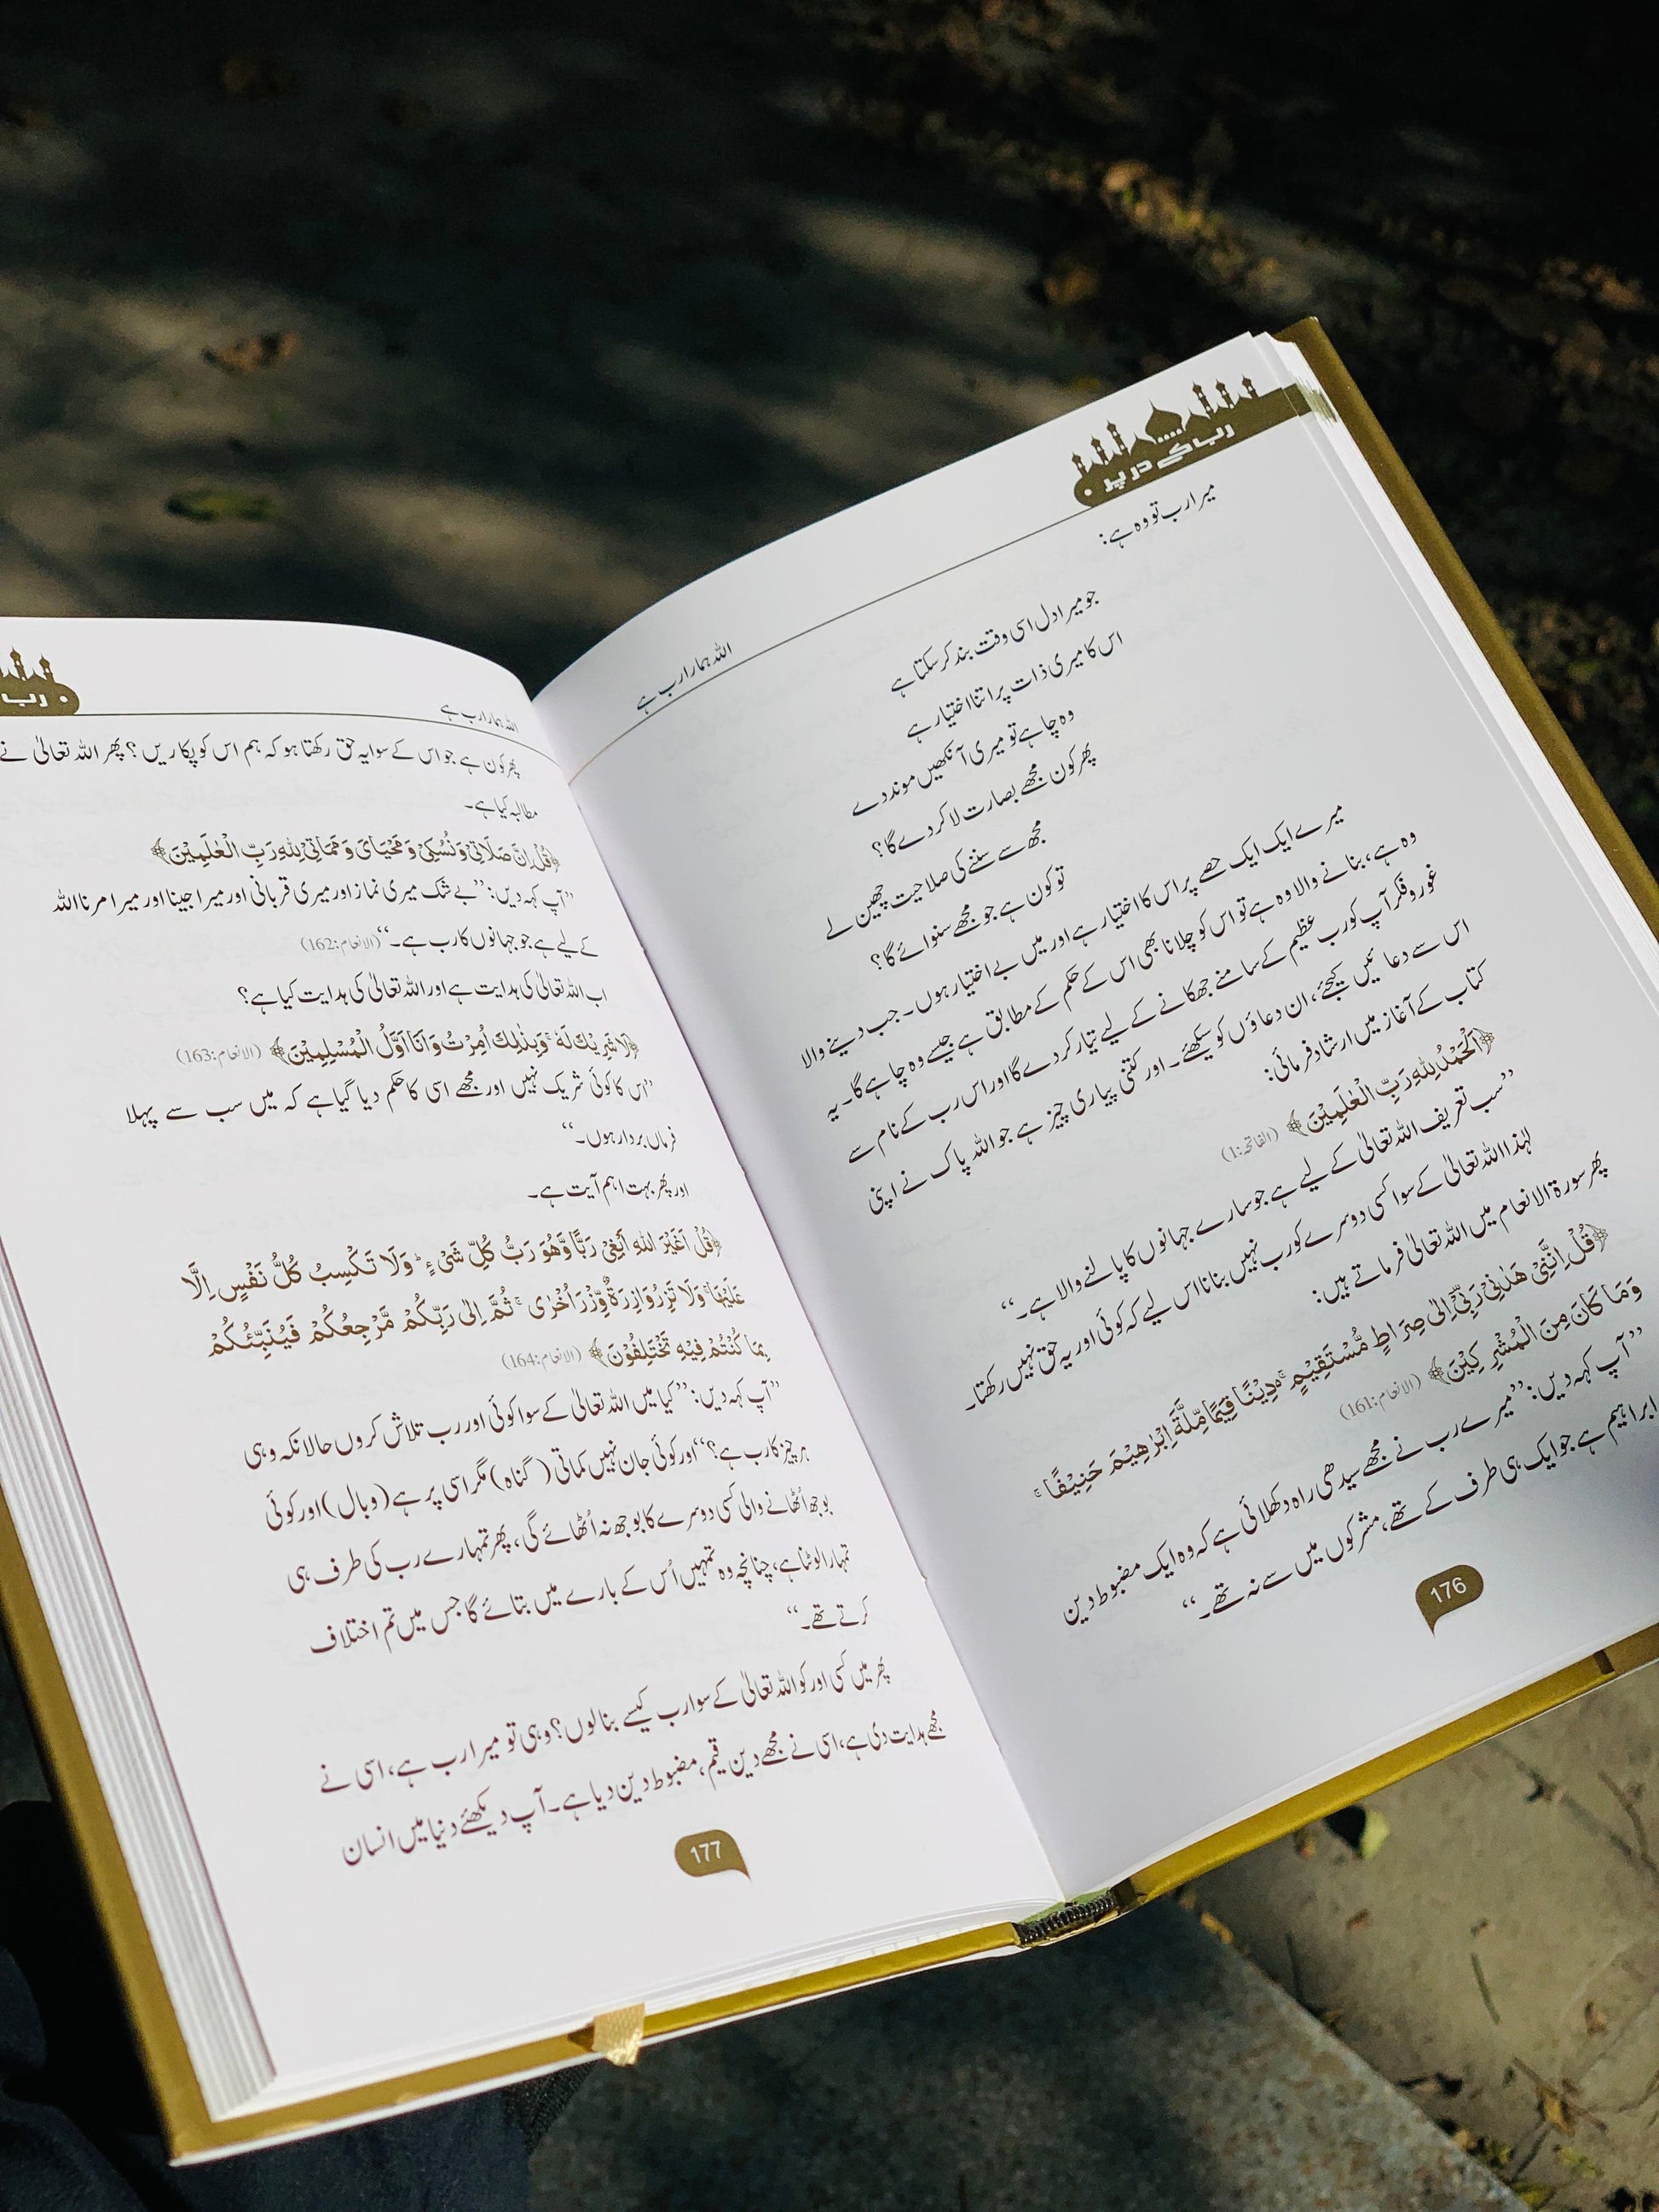 رب کے در پر
اللہ ہمارا رب ہے
میرا رب تو وہ ہے:
جو میرا دل اسی وقت بند کر سکتا ہے
اس کا میری ذات پر اتنا اختیار ہے
وہ چاہے تو میری آنکھیں موند دے
پھر کون مجھے بصارت لا کر دے گا؟
مجھ سے سننے کی صلاحیت چھین لے
تو کون ہے جو مجھے سنوائے گا؟
میرے ایک ایک حصے پر اس کا اختیار ہے اور میں بے اختیار ہوں۔ جب دینے والا
وہ ہے، بنانے والا وہ ہے تو اس کو چلانا بھی اس کے حکم کے مطابق ہے جیسے وہ چاہے گا۔ یہ
غور و فکر آپ کو رب عظیم کے سامنے جھکانے کے لیے تیار کر دے گا اور اس رب کے نام سے
اس سے دعا ئیں کیجئے، ان دعاؤں کو سیکھئے۔ اور کتنی پیاری چیز ہے جو اللہ پاک نے اپنی
کتاب کے آغاز میں ارشاد فرمائی:
﴿اَلْحَمْدُ لِلّٰهِ رَبِّ الْعٰلَمِيْنَ﴾ (الفاتحہ:1)
’’سب تعریف اللہ تعالیٰ کے لیے ہے جو سارے جہانوں کا پالنے والا ہے۔‘‘
لہٰذا اللہ تعالیٰ کے سوا کسی دوسرے کو رب نہیں بنانا اس لیے کہ کوئی اور یہ حق نہیں رکھتا۔
پھر سورۃ الانعام میں اللہ تعالیٰ فرماتے ہیں:
﴿قُلْ اِنَّنِيْ هَدٰىنِيْ رَبِّيْٓ اِلٰى صِرَاطٍ مُّسْتَقِيْمٍ ۚ دِيْنًا قِيَمًا مِّلَّةَ اِبْرٰهِيْمَ حَنِيْفًا ۚ
وَمَا كَانَ مِنَ الْمُشْرِكِيْنَ﴾ (الانعام:161)
’’آپ کہہ دیں: ’’میرے رب نے مجھے سیدھی راہ دکھلائی ہے کہ وہ ایک مضبوط دین
ابراہیم ہے جو ایک ہی طرف کے تھے، مشرکوں میں سے نہ تھے۔‘‘
176
رب
اللہ ہمارا رب ہے
پھر کون ہے جو اس کے سوا یہ حق رکھتا ہو کہ ہم اس کو پکاریں؟ پھر اللہ تعالیٰ نے
مطالبہ کیا ہے۔
﴿قُلْ اِنَّ صَلَاتِيْ وَنُسُكِيْ وَمَحْيَايَ وَمَمَاتِيْ لِلّٰهِ رَبِّ الْعٰلَمِيْنَ﴾
’’آپ کہہ دیں: ’’بے شک میری نماز اور میری قربانی اور میرا جینا اور میرا مرنا اللہ
کے لیے ہے جو جہانوں کا رب ہے۔‘‘ (الانعام:162)
اب اللہ تعالیٰ کی ہدایت ہے اور اللہ تعالیٰ کی ہدایت کیا ہے؟
﴿لَا شَرِيْكَ لَهٗ ۚ وَبِذٰلِكَ اُمِرْتُ وَاَنَا اَوَّلُ الْمُسْلِمِيْنَ﴾ (الانعام:163)
’’اس کا کوئی شریک نہیں اور مجھے اسی کا حکم دیا گیا ہے کہ میں سب سے پہلا
فرماں بردار ہوں۔‘‘
اور پھر بہت اہم آیت ہے۔
﴿قُلْ اَغَيْرَ اللّٰهِ اَبْغِيْ رَبًّا وَّهُوَ رَبُّ كُلِّ شَيْءٍ ۭ وَلَا تَكْسِبُ كُلُّ نَفْسٍ اِلَّا
عَلَيْهَا ۚ وَلَا تَزِرُ وَازِرَةٌ وِّزْرَ اُخْرٰى ۚ ثُمَّ اِلٰى رَبِّكُمْ مَّرْجِعُكُمْ فَيُنَبِّئُكُمْ
بِمَا كُنْتُمْ فِيْهِ تَخْتَلِفُوْنَ﴾ (الانعام:164)
’’آپ کہہ دیں: ’’کیا میں اللہ تعالیٰ کے سوا کوئی اور رب تلاش کروں حالانکہ وہی
ہر چیز کا رب ہے؟‘‘ اور کوئی جان نہیں کماتی (گناہ) مگر اسی پر ہے (وبال) اور کوئی
بوجھ اُٹھانے والی کسی دوسرے کا بوجھ نہ اُٹھائے گی، پھر تمہارے رب کی طرف ہی
تمہارا لوٹنا ہے، چنانچہ وہ تمہیں اُس کے بارے میں بتائے گا جس میں تم اختلاف
کرتے تھے۔‘‘
پھر میں کسی اور کو اللہ تعالیٰ کے سوا رب کیسے بنا لوں؟ وہی تو میرا رب ہے، اسی نے
مجھے ہدایت دی ہے، اسی نے مجھے دین قیم، مضبوط دین دیا ہے۔ آپ دیکھئے دنیا میں انسان
177